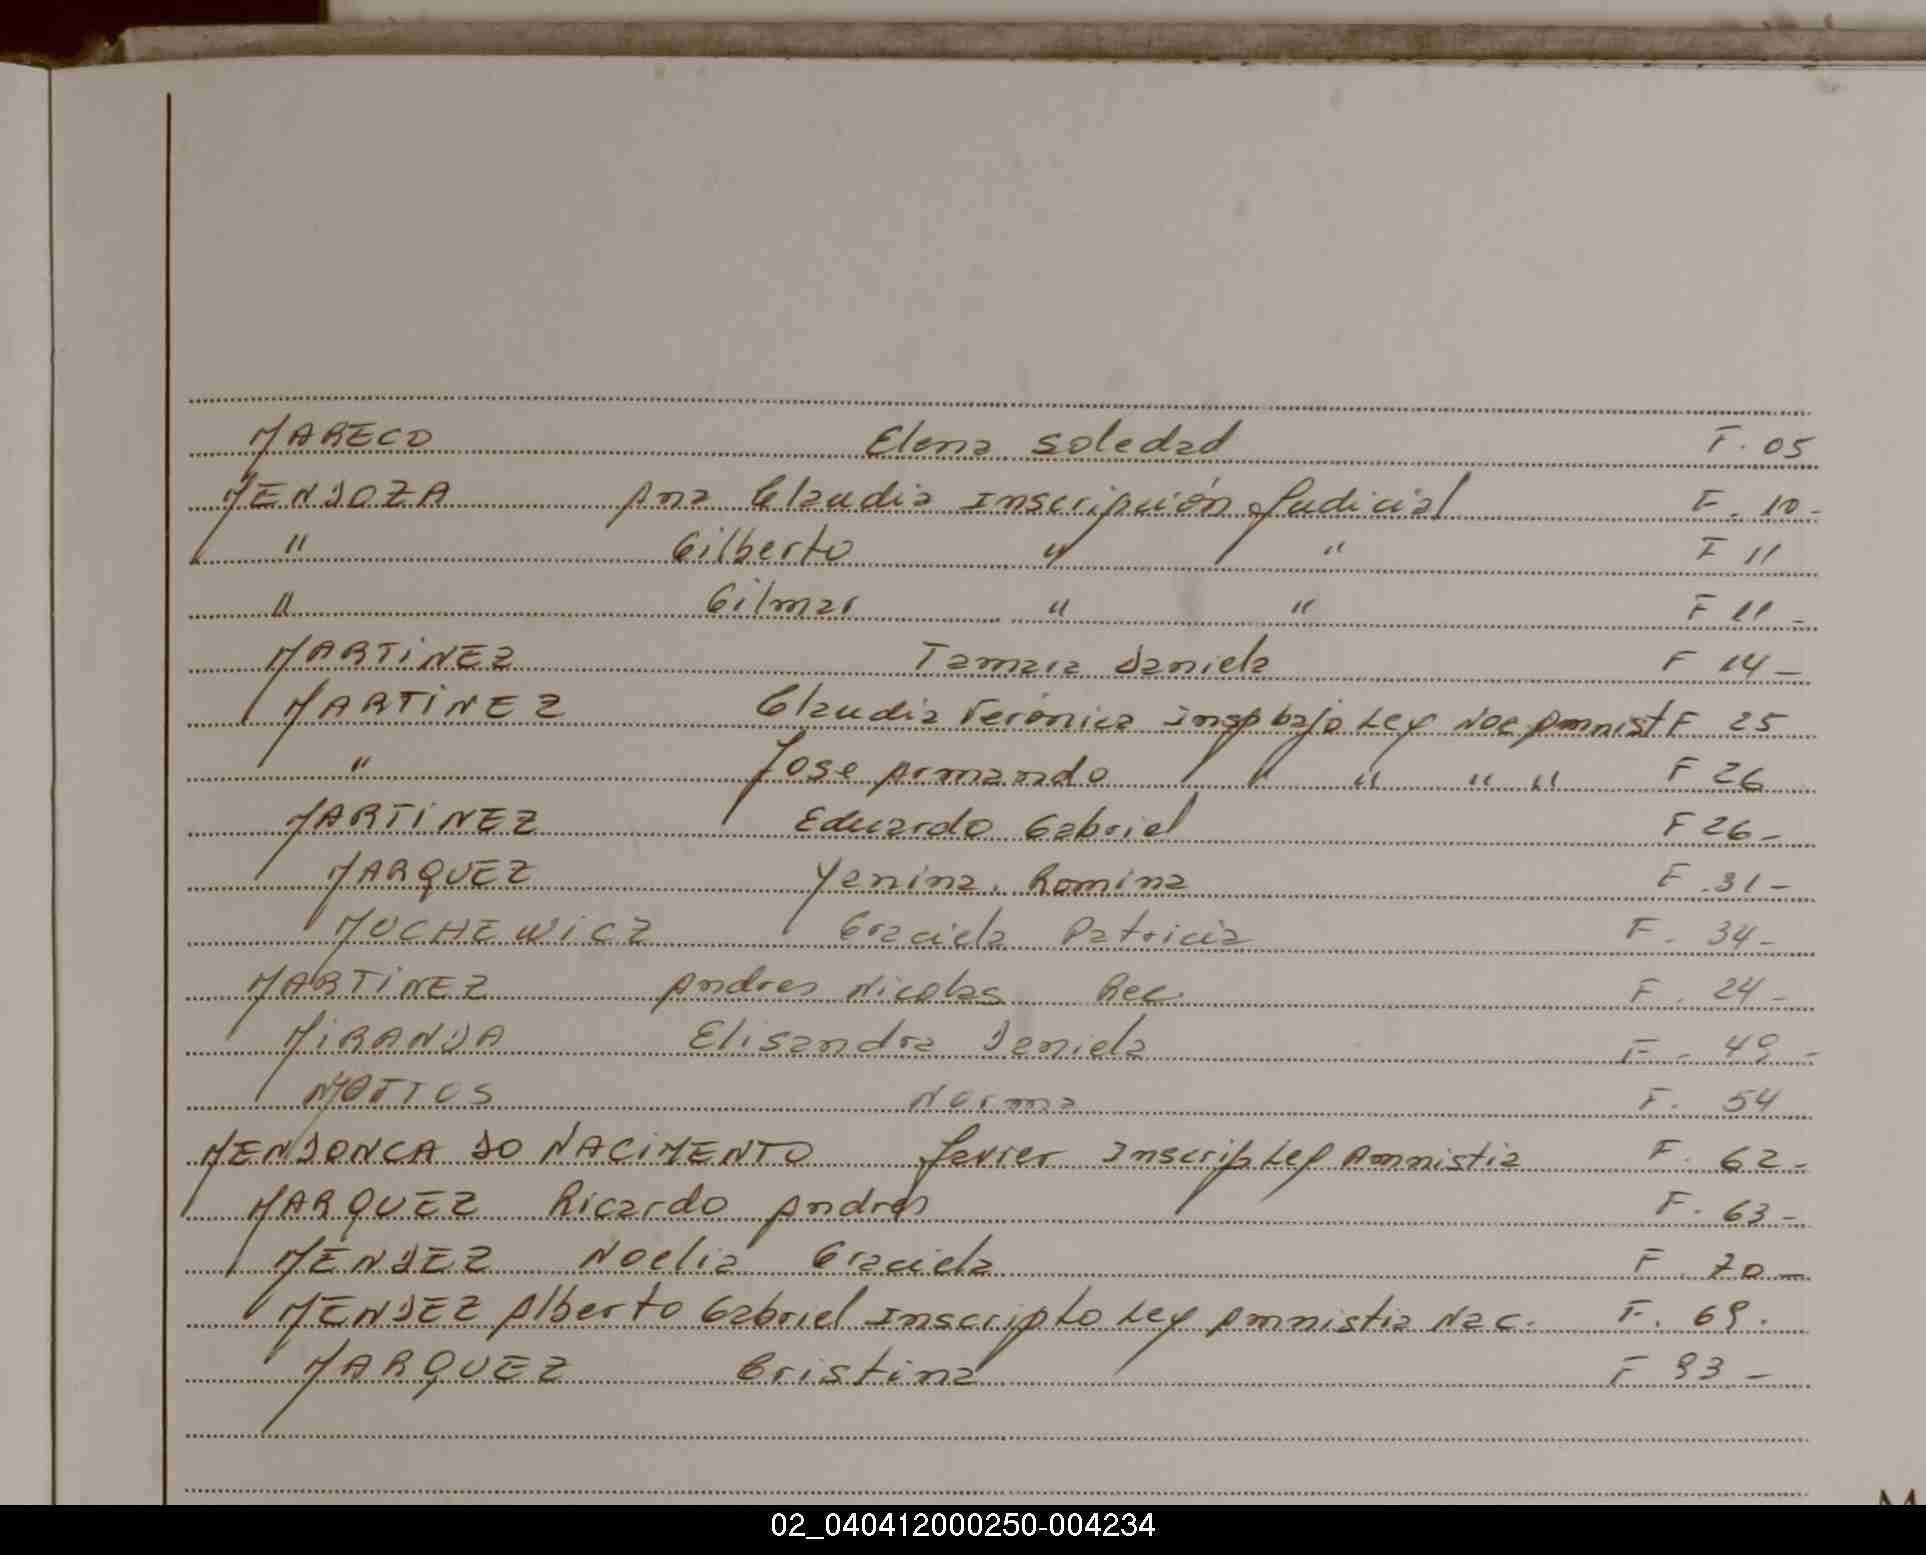 MARECO Elena Soledad F. 05
MENDOZA Ana Claudia Inscripción Judicial F. 10-
" Gilberto " " F 11
" Gilmar " " F 11 -
MARTINEZ Tamara Daniela F 14 -
MARTINEZ Claudia Verónica Insp bajo Ley Nac Amnist F 25
" Jose Armando " " " " F 26
MARTINEZ Eduardo Gabriel F 26 -
MARQUEZ Yanina Romina F. 31 -
MUCHEWICZ Graciela Patricia F. 34 -
MARTINEZ Andres Nicolas Rec. F. 24 -
MIRANDA Elisandra Daniela F. 49 -
MATTOS Norma F. 54
MENDONCA DO NACIMENTO Javier Inscrip Ley Amnistia F. 62 -
MARQUEZ Ricardo Andres F. 63 -
MENDEZ Noelia Graciela F. 70 -
MENDEZ Alberto Gabriel Inscripto Ley Amnistia Nac. F. 69.
MARQUEZ Cristina F 93 -
02_040412000250-004234